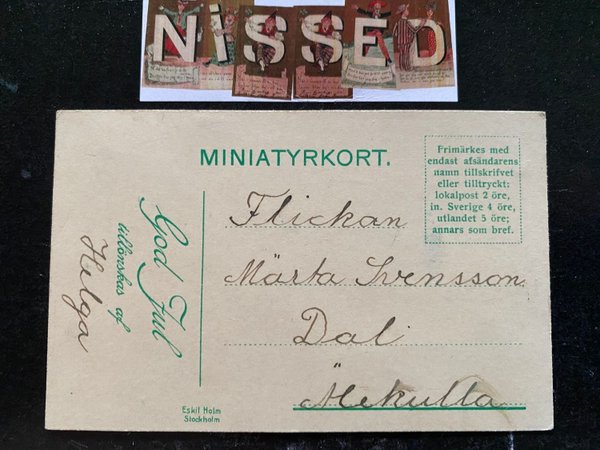 NiSSED
MINIATYRKORT.
Frimärkes med
endast afsändarens
namn tillskrifvet
eller tilltryckt:
lokalpost 2 öre,
in. Sverige 4 öre,
utlandet 5 öre;
annars som bref.
God Jul
tillönskas af
Helga
Flickan
Märta Svensson
Dal
Mekulla
Eskil Holm
Stockholm